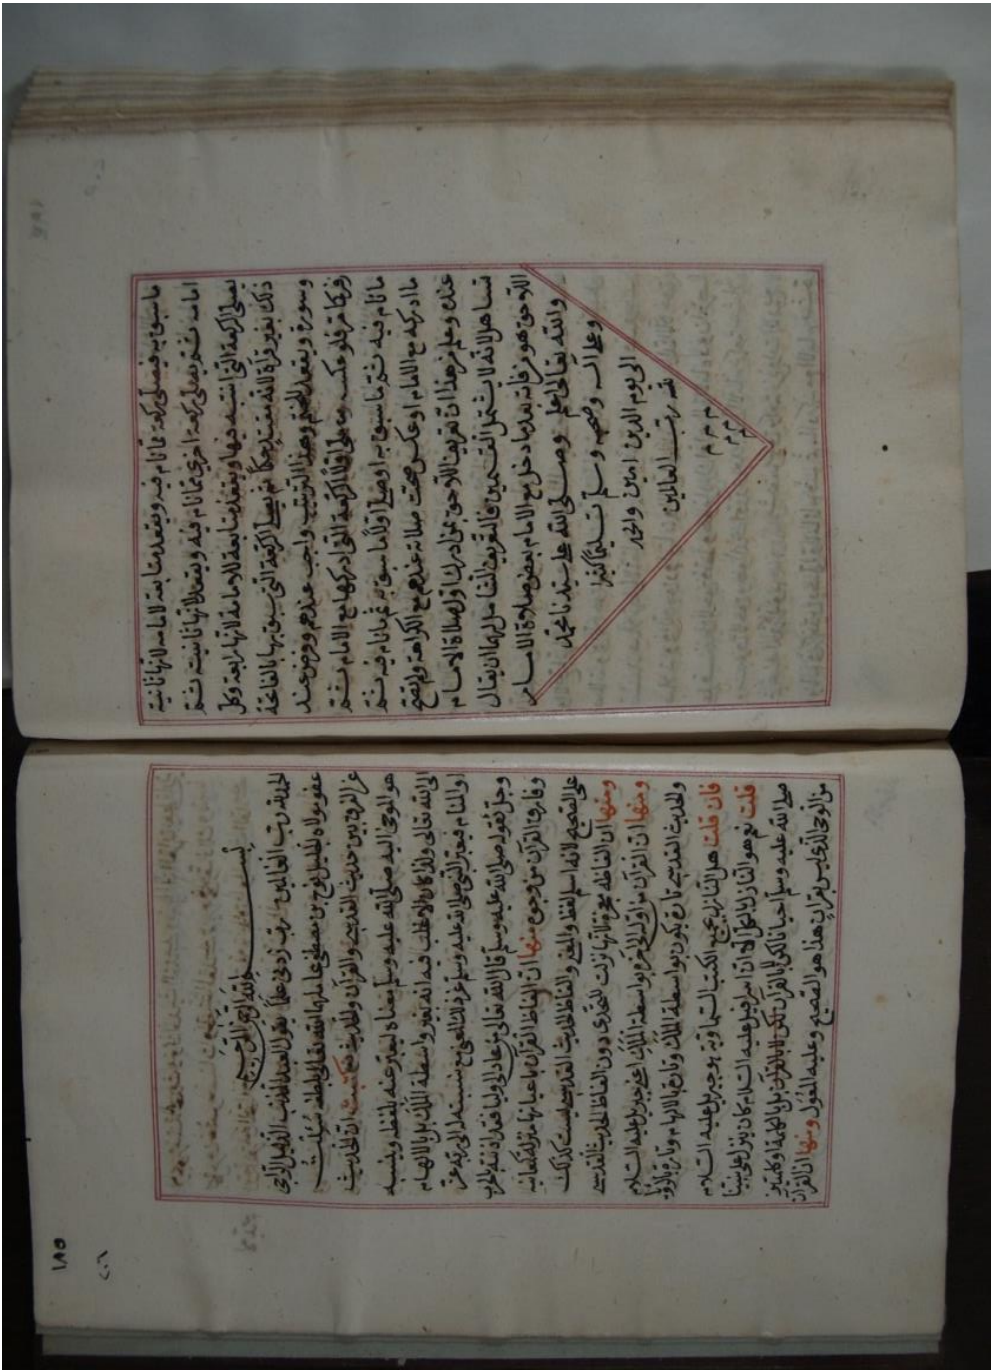 ما سبق به فيصلي ركعة مما نام فيه ويقعد متابعة لامامه لانها ثانية
امامه ثم يصلي ركعة اخرى مما نام فيه ويقعد لانها ثانيته ثم
يصلي الركعة التي انتبه فيها ويقعد متابعة للامامه لانها رابعة وكل
ذلك بغير قراءة لانه مقتد حكما ثم يصلي الركعة التي سبق بها بالفاتحة
وسورة ويقعد للختم وهذا الترتيب واجب عندهم وفرض عند
زفر كما مر فلو عكس وصلى اولا الركعة التي ادركها مع الامام ثم
ما نام فيه ثم ما سبق به او صلى اولا ما سبق به ثم ما نام فيه ثم
ما ادركه مع الامام او عكس صحت صلاته عندهم مع الكراهة ولم تصح
عنده وعلم من هذا ان تعريف اللاحق بمن ادرك اول صلاة الامام
تساهل لانه لا يشمل القسمين فالتعريف الشامل لهما ان يقال
اللاحق هو من فاته بعد ما دخل مع الامام بعض صلاة الامام
والله تعالى اعلم وصلى الله على سيدنا محمد
وعلى اله وصحبه وسلم تسليما كثيرا
الى يوم الدين امين والحمد
لله رب العالمين
م م م
م م
م
١٨٥
٢٠٦
بسم الله الرحمن الرحيم
الحمد لله رب العالمين رب زدني علما يقول العبد المذنب الذليل الراجي
عفو مولاه الجليل نوح بن مصطفى عاملهما الله تعالى بلطفه سئلت
عن الفرق بين حديث القدسي والقرآن والحديث فكتبت ان الحديث
هو الموحى اليه صلى الله عليه وسلم معناه ليعبر عنه بلفظه وينسبه
الى الله تعالى ولذا كان الاغلب فيه انه بغير واسطة الملك بل بالالهام
او المنام فيعبر النبي صلى الله عليه وسلم عن ذلك المعنى مع نسبته الى ربه عز
وجل كقوله صلى الله عليه وسلم قال الله تعالى من عادى لي وليا فقد اذنته بالحرب
وفارق القرآن من وجوه منها ان الفاظ القرآن باعيانها منزلة كمعانيه
على الصحيح لانه اسم للفظ والمعنى والفاظ الحديث القدسي ليست كذلك
ومنها ان الفاظه معجزة لانها نزلت للتحدي دون الفاظ الحديث القدسي
ومنها ان القرآن منزل البتة بواسطة الملك اعني جبريل عليه السلام
والحديث القدسي تارة يكون بواسطة الملك وتارة بالالهام وتارة بالرؤيا
فان قلت هل النازل بجميع الكتب السماوية هو جبريل عليه السلام
قلت نعم هو النازل بالكل الا ان اسرافيل عليه السلام كان ينزل على نبينا
صلى الله عليه وسلم احيانا لكن لا بالقرآن بل بالكلمة والكلمتين
من الوحي الذي ليس بقرآن هذا هو الصحيح وعليه المعول ومنها ان القرآن